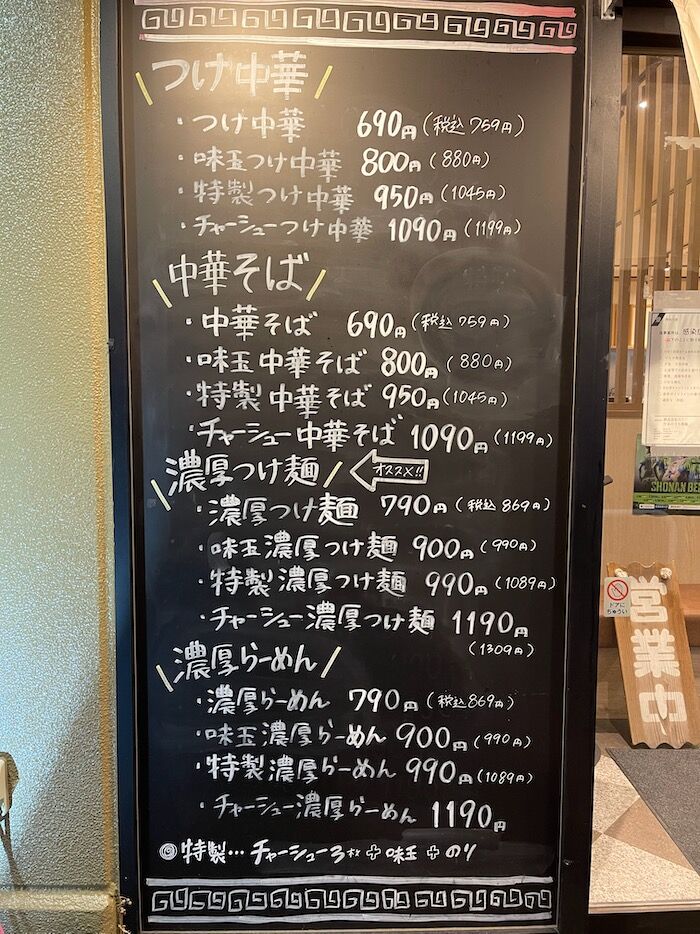 つけ中華
・つけ中華 690円(税込759円)
・味玉つけ中華 800円(880円)
・特製つけ中華 950円(1045円)
・チャーシューつけ中華 1090円(1199円)
中華そば
・中華そば 690円(税込759円)
・味玉中華そば 800円(880円)
・特製中華そば 950円(1045円)
・チャーシュー中華そば 1090円(1199円)
濃厚つけ麺 オススメ!!
・濃厚つけ麺 790円(税込869円)
・味玉濃厚つけ麺 900円(990円)
・特製濃厚つけ麺 990円(1089円)
・チャーシュー濃厚つけ麺 1190円
(1309円)
濃厚らーめん
・濃厚らーめん 790円(税込869円)
・味玉濃厚らーめん 900円(990円)
・特製濃厚らーめん 990円(1089円)
・チャーシュー濃厚らーめん 1190円
◎特製…チャーシュー3枚+味玉+のり
SHONAN BE
ドアに
ちゅうい
営業中